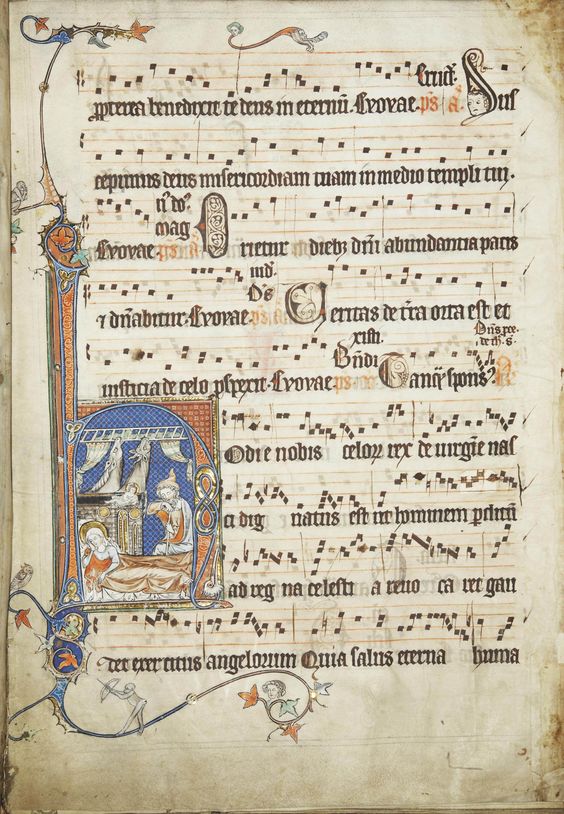 Eruct.
ppterea benedixit te deus in eternū. Evovae. ps̄ a. Sus
cepimus deus misericordiam tuam in medio templi tui.
mag
Evovae. ps̄ a. Orietur diebꝫ dn̄i abundantia pacis
⁊ dn̄abitur. Evovae. ps̄ a. Veritas de t̄ra orta est et
iusticia de celo pspexit. Evovae. ps̄ Tanqͫ spons⁹ R
Hodie nobis celoꝝ rex de uirgīe nas
ci dig natus est ut hominem pditū
ad reg na celesti a reuo ca ret gau
det exercitus angelorum Quia salus eterna huma